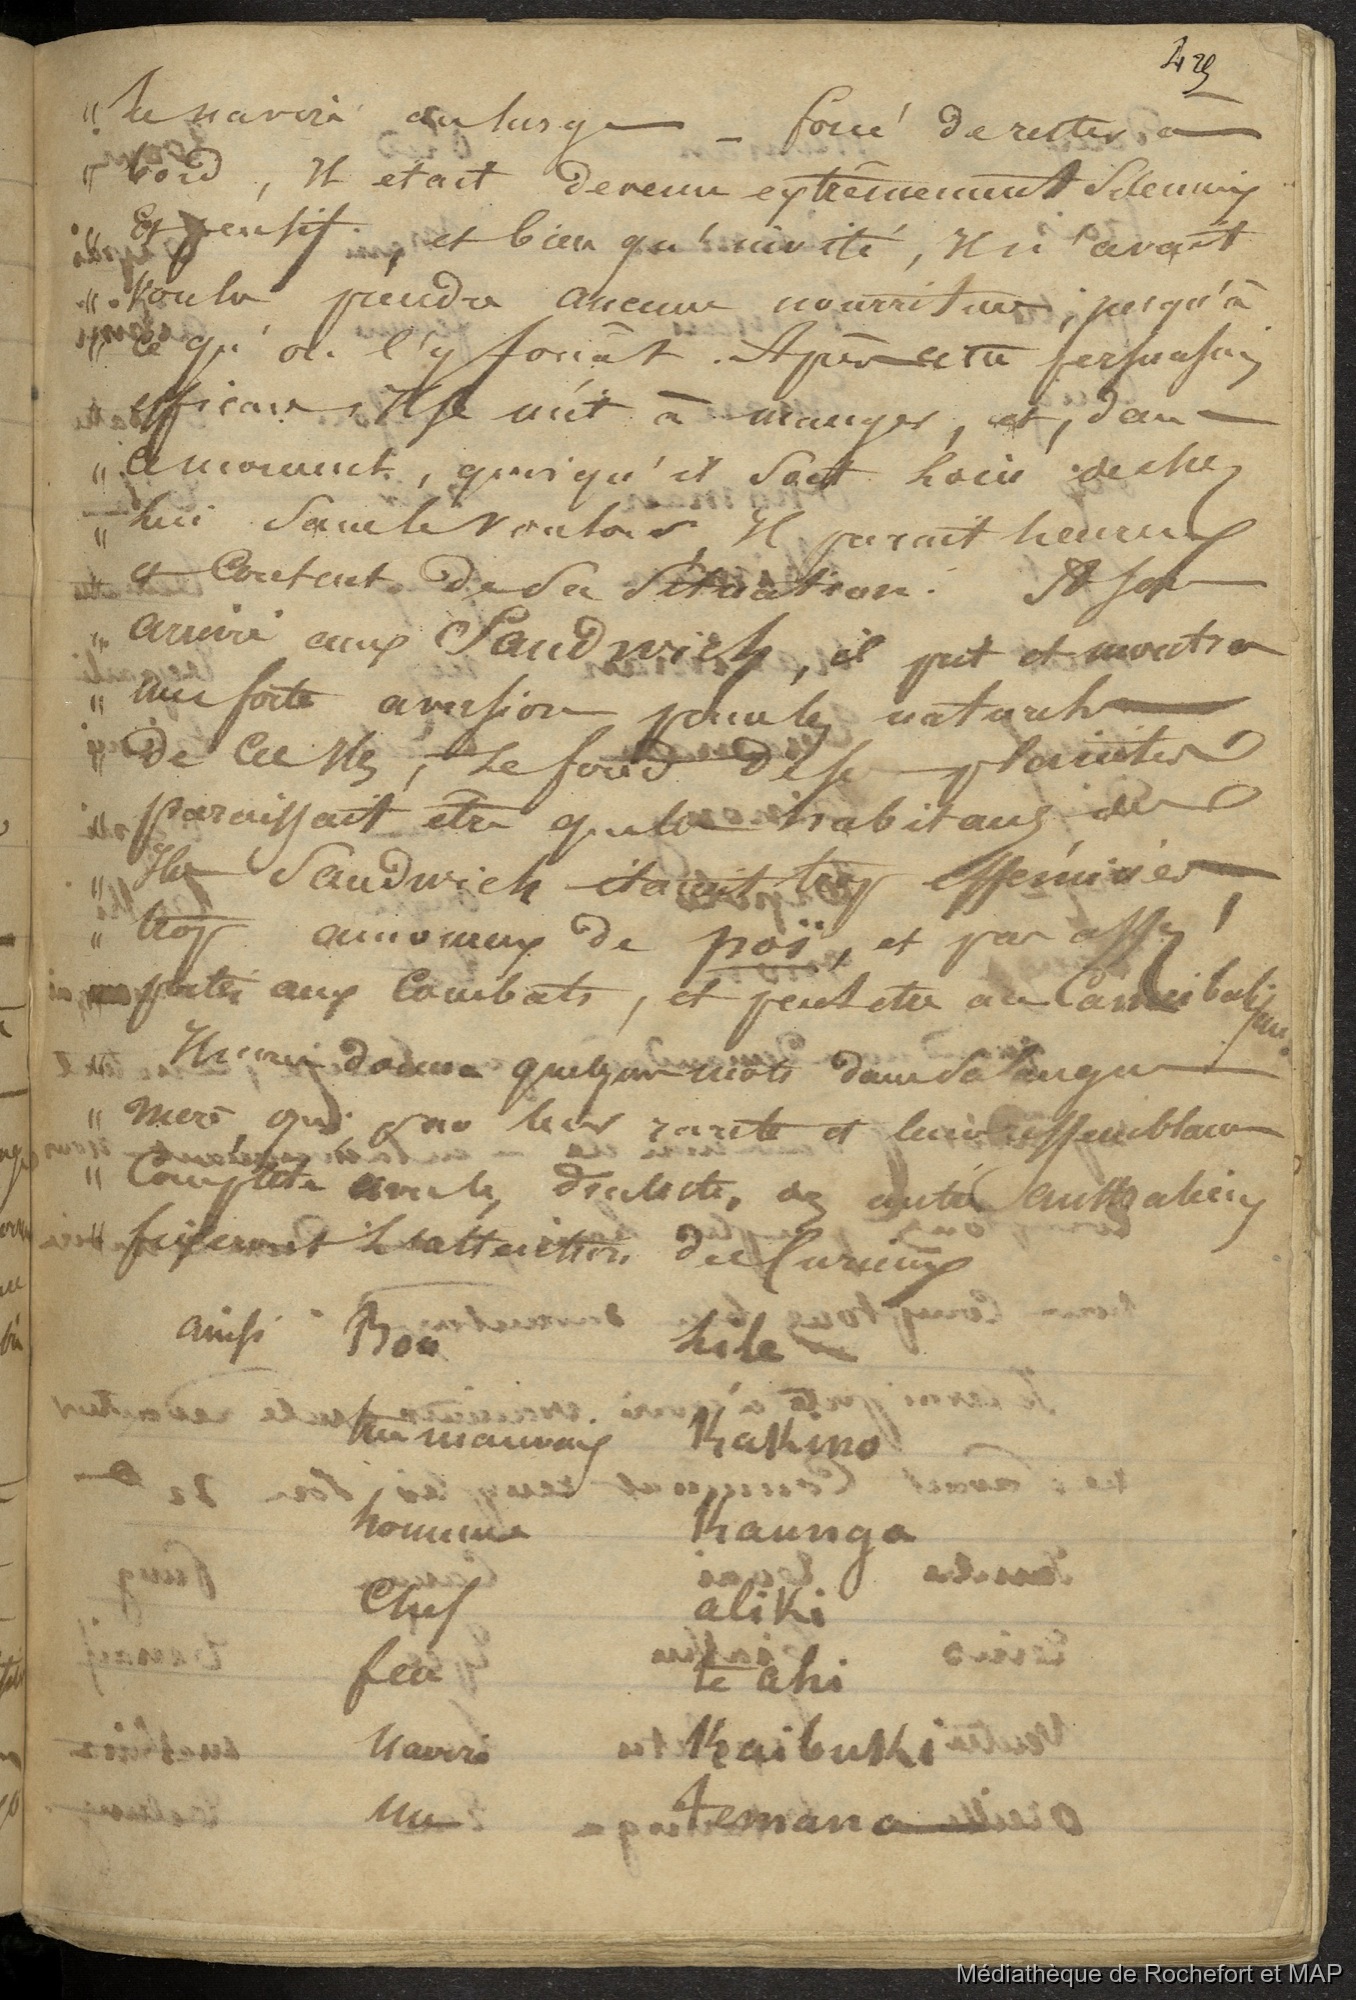 429
" le navire au large _ forcé de rester à
" bord, Il etait devenu extrêmement silencieux
" Et pensif. et bien qu'invité, Il n'avait
" voulu prendre aucune nourriture, jusqu'à
" ce qu'on l'y forçât. Après cette persuasion
" efficace Il se mit à manger, et, dans
" ce moment, quoiqu'il soit loin de chez
" lui sans le vouloir, Il parait heureux
et Content de sa situation. A son
" arrivée aux Sandwich, il prit et montra
" une forte aversion pour les naturels
" de Ces Iles, Le fond de ses plaintes
" paraissait être que les habitans des
" Iles Sandwich étaient trop efféminés
" trop amoureux de poï, et pas assez
portés aux Combats, et peut etre au Cannibalisme.
Il nous donna quelques mots dans sa langue
" mere qui par leur rareté et leur ressemblance
" Complète avec les dialectes, des autres australiens
fixeront l'attention des Curieux
ainsi Bon lile
tres mauvais Kakino
homme Kaunga
Chef aliki
feu te ahi
Navire Kaibuki
nu Temana
Médiathèque de Rochefort et MAP